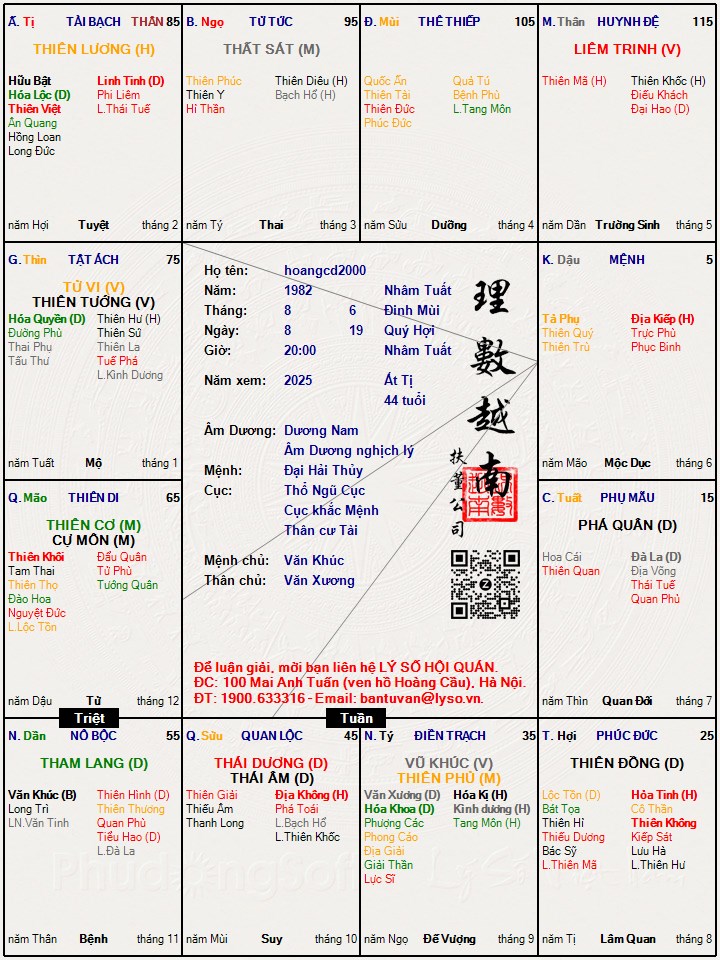 Á. Tị TÀI BẠCH THÂN 85
THIÊN LƯƠNG (H)
Hữu Bật
Hóa Lộc (D)
Thiên Việt
Ân Quang
Hồng Loan
Long Đức
Linh Tinh (D)
Phi Liêm
L.Thái Tuế
năm Hợi Tuyệt tháng 2
B. Ngọ TỬ TỨC 95
THẤT SÁT (M)
Thiên Phúc
Thiên Y
Hỉ Thần
Thiên Diêu (H)
Bạch Hổ (H)
năm Tý Thai tháng 3
Đ. Mùi THÊ THIẾP 105
Quốc Ấn
Thiên Tài
Thiên Đức
Phúc Đức
Quả Tú
Bệnh Phù
L.Tang Môn
năm Sửu Dưỡng tháng 4
M. Thân HUYNH ĐỆ 115
LIÊM TRINH (V)
Thiên Mã (H)
Thiên Khốc (H)
Điếu Khách
Đại Hao (D)
năm Dần Trường Sinh tháng 5
G. Thìn TẬT ÁCH 75
TỬ VI (V)
THIÊN TƯỚNG (V)
Hóa Quyền (D)
Đường Phù
Thai Phụ
Tấu Thư
Thiên Hư (H)
Thiên Sứ
Thiên La
Tuế Phá
L.Kình Dương
năm Tuất Mộ tháng 1
Họ tên: hoangcd2000
Năm: 1982 Nhâm Tuất
Tháng: 8 6 Đinh Mùi
Ngày: 8 19 Quý Hợi
Giờ: 20:00 Nhâm Tuất
Năm xem: 2025 Ất Tị
44 tuổi
Âm Dương: Dương Nam
Âm Dương nghịch lý
Mệnh: Đại Hải Thủy
Cục: Thổ Ngũ Cục
Cục khắc Mệnh
Thân cư Tài
Mệnh chủ: Văn Khúc
Thân chủ: Văn Xương
理數越南
扶董公司
Để luận giải, mời bạn liên hệ LÝ SỐ HỘI QUÁN.
ĐC: 100 Mai Anh Tuấn (ven hồ Hoàng Cầu), Hà Nội.
ĐT: 1900.633316 - Email: bantuvan@lyso.vn.
K. Dậu MỆNH 5
Tả Phụ
Thiên Quý
Thiên Trù
Địa Kiếp (H)
Trực Phù
Phục Binh
năm Mão Mộc Dục tháng 6
Q. Mão THIÊN DI 65
THIÊN CƠ (M)
CỰ MÔN (M)
Thiên Khôi
Tam Thai
Thiên Thọ
Đào Hoa
Nguyệt Đức
L.Lộc Tồn
Đẩu Quân
Tử Phù
Tướng Quân
năm Dậu Tử tháng 12
C. Tuất PHỤ MẪU 15
PHÁ QUÂN (D)
Hoa Cái
Thiên Quan
Đà La (D)
Địa Võng
Thái Tuế
Quan Phủ
năm Thìn Quan Đới tháng 7
Triệt
Tuần
N. Dần NÔ BỘC 55
THAM LANG (D)
Văn Khúc (B)
Long Trì
LN.Văn Tinh
Thiên Hình (D)
Thiên Thương
Quan Phù
Tiểu Hao (D)
L.Đà La
năm Thân Bệnh tháng 11
Q. Sửu QUAN LỘC 45
THÁI DƯƠNG (D)
THÁI ÂM (D)
Thiên Giải
Thiếu Âm
Thanh Long
Địa Không (H)
Phá Toái
L.Bạch Hổ
L.Thiên Khốc
năm Mùi Suy tháng 10
N. Tý ĐIỀN TRẠCH 35
VŨ KHÚC (V)
THIÊN PHỦ (M)
Văn Xương (D)
Hóa Khoa (D)
Phượng Các
Phong Cáo
Địa Giải
Giải Thần
Lực Sĩ
Hóa Kị (H)
Kình dương (H)
Tang Môn (H)
năm Ngọ Đế Vượng tháng 9
T. Hợi PHÚC ĐỨC 25
THIÊN ĐỒNG (D)
Lộc Tồn (D)
Bát Tọa
Thiên Hỉ
Thiếu Dương
Bác Sỹ
L.Thiên Mã
Hỏa Tinh (H)
Cô Thần
Thiên Không
Kiếp Sát
Lưu Hà
L.Thiên Hư
năm Tị Lâm Quan tháng 8